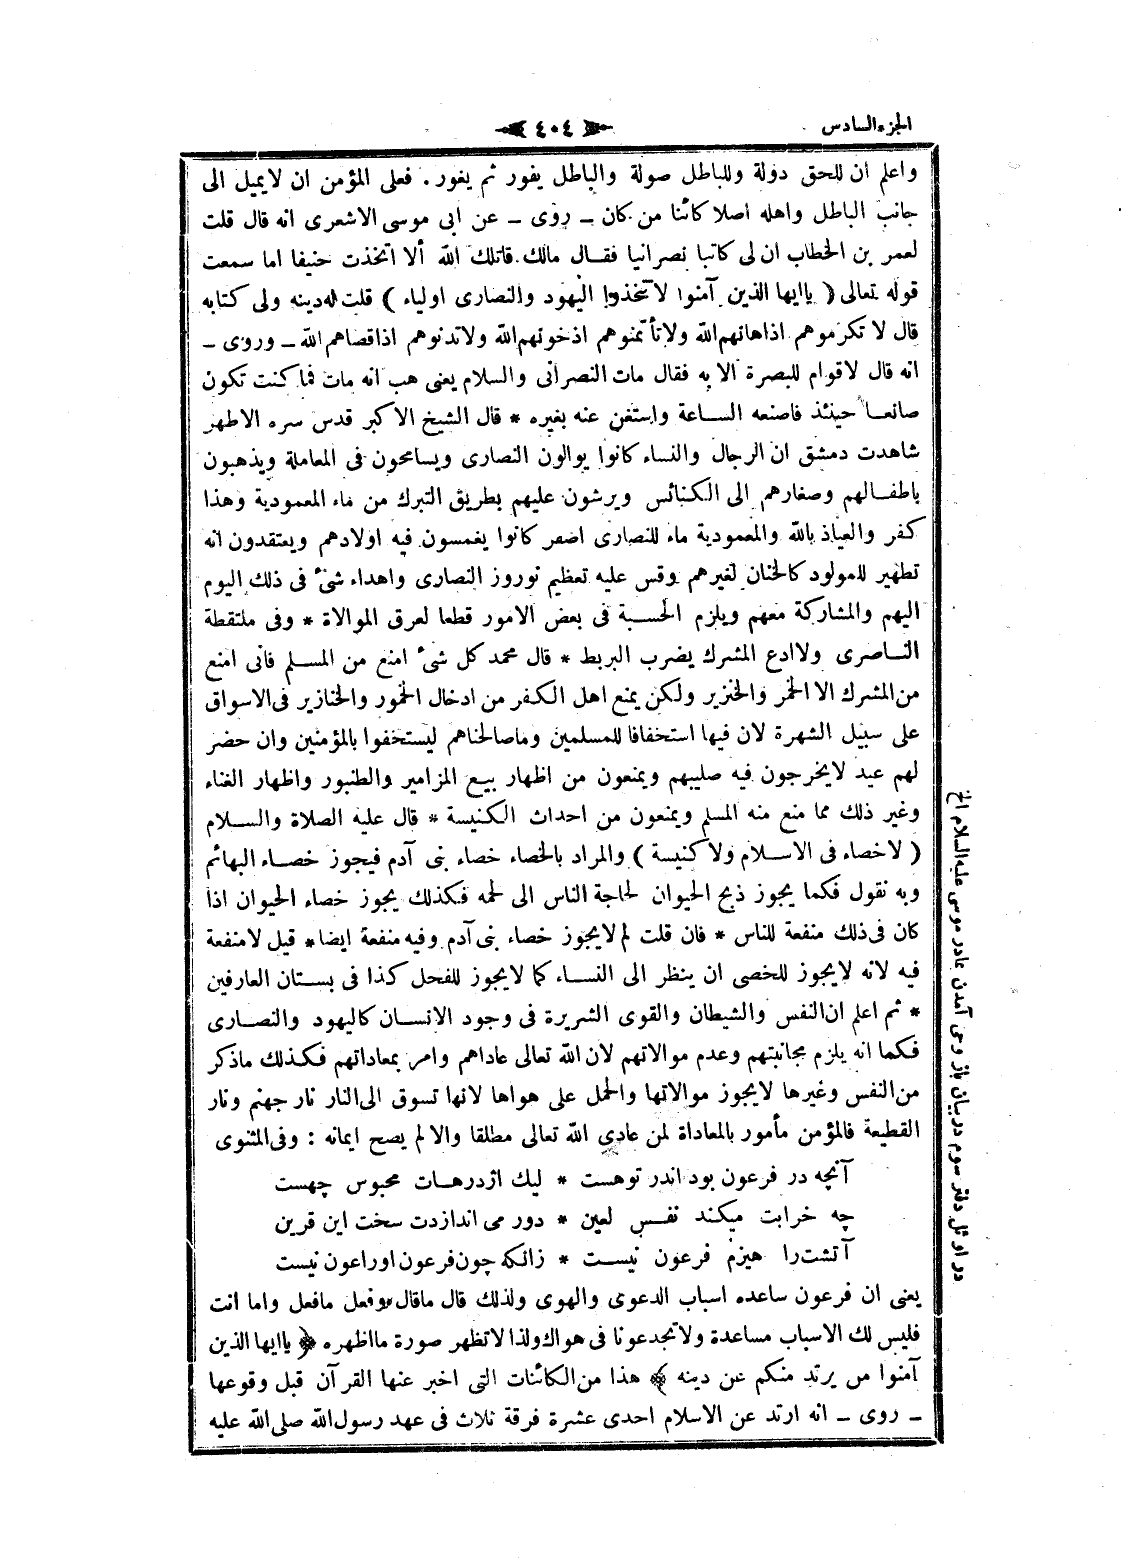 الجزء السادس
٤٠٤
واعلم ان للحق دولة وللباطل صولة والباطل يفور ثم يغور . فعلى المؤمن ان لايميل الى
جانب الباطل واهله اصلا كائنا من كان ـ روى ـ عن ابى موسى الاشعرى انه قال قلت
لعمر بن الخطاب ان لى كاتبا نصرانيا فقال مالك قاتلك الله ألا اتخذت حنيفا اما سمعت
قوله تعالى ( ياايها الذين آمنوا لاتتخذوا اليهود والنصارى اولياء ) قلت له دينه ولى كتابه
قال لا تكرموهم اذاهانهم الله ولاتأتمنوهم اذخونهم الله ولاتدنوهم اذاقصاهم الله ـ وروى ـ
انه قال لاقوام للبصرة الا به فقال مات النصرانى والسلام يعنى هب انه مات فما كنت تكون
صانعا حينئذ فاصنعه الساعة واستغن عنه بغيره * قال الشيخ الاكبر قدس سره الاطهر
شاهدت دمشق ان الرجال والنساء كانوا يوالون النصارى ويسامحون فى المعاملة ويذهبون
باطفالهم وصغارهم الى الكنائس ويرشون عليهم بطريق التبرك من ماء المعمودية وهذا
كفر والعياذ بالله والمعمودية ماء للنصارى اصفر كانوا يغمسون فيه اولادهم ويعتقدون انه
تطهير للمولود كالختان لغيرهم وقس عليه تعظيم نوروز النصارى واهداء شئ فى ذلك اليوم
اليهم والمشاركة معهم ويلزم الحسبة فى بعض الامور قطعا لعرق الموالاة * وفى ملتقطة
الناصرى ولاادع المشرك يضرب البربط * قال محمد كل شئ امنع من المسلم فانى امنع
من المشرك الا الخمر والخنزير ولكن يمنع اهل الكفر من ادخال الخمور والخنازير فى الاسواق
على سبيل الشهرة لان فيها استخفافا للمسلمين وماصالحناهم ليستخفوا بالمؤمنين وان حضر
لهم عيد لايخرجون فيه صليبهم ويمنعون من اظهار بيع المزامير والطنبور واظهار الغناء
وغير ذلك مما منع منه المسلم ويمنعون من احداث الكنيسة * قال عليه الصلاة والسلام
( لاخصاء فى الاسلام ولا كنيسة ) والمراد بالخصاء خصاء بنى آدم فيجوز خصاء البهائم
وبه نقول فكما يجوز ذبح الحيوان لحاجة الناس الى لحمه فكذلك يجوز خصاء الحيوان اذا
كان فى ذلك منفعة للناس * فان قلت لم لايجوز خصاء بنى آدم وفيه منفعة ايضا * قيل لامنفعة
فيه لانه لايجوز للخصى ان ينظر الى النساء كما لايجوز للفحل كذا فى بستان العارفين
* ثم اعلم ان النفس والشيطان والقوى الشريرة فى وجود الانسان كاليهود والنصارى
فكما انه يلزم مجانبتهم وعدم موالاتهم لان الله تعالى عاداهم وامر بمعاداتهم فكذلك ماذكر
من النفس وغيرها لايجوز موالاتها والحمل على هواها لانها تسوق الى النار نار جهنم ونار
القطيعة فالمؤمن مأمور بالمعاداة لمن عادى الله تعالى مطلقا والا لم يصح ايمانه : وفى المثنوى
آنچه در فرعون بود اندر توهست * ليك اژدرهات محبوس چهست
چه خرابت ميكند نفس لعين * دور مى اندازدت سخت اين قرين
آتشت را هيزم فرعون نيست * زانكه چون فرعون اوراعون نيست
يعنى ان فرعون ساعده اسباب الدعوى والهوى ولذلك قال ماقال وفعل مافعل واما انت
فليس لك الاسباب مساعدة ولاتجدعونا فى هواك ولذا لاتظهر صورة مااظهره ﴿ ياايها الذين
آمنوا من يرتد منكم عن دينه ﴾ هذا من الكائنات التى اخبر عنها القرآن قبل وقوعها
ـ روى ـ انه ارتد عن الاسلام احدى عشرة فرقة ثلاث فى عهد رسول الله صلى الله عليه
در اوائل دفتر سوم دربيان باز وحى آمدن بمادر موسى عليه السلام الخ